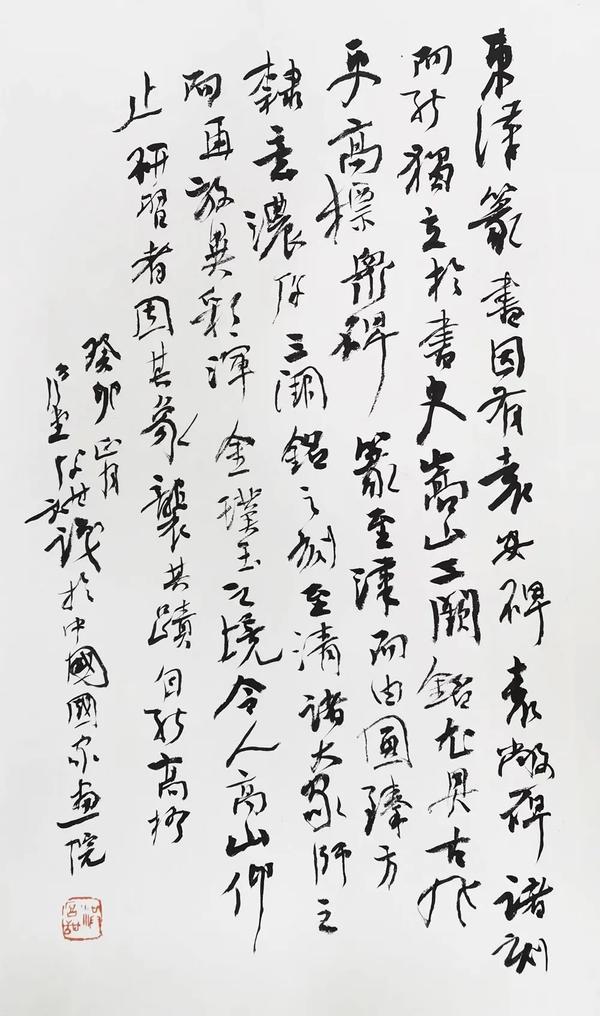 東漢篆書因有袁安碑袁敞碑諸刻
而能獨立於書史嵩山三闕銘尤具古
高標衆碑篆至漢而由圓臻方
隸意濃三闕銘之刻至清諸大家師之
而再放異彩渾金璞玉之境令人高山仰
止研習者因其象襲其蹟自能高
癸卯正月
識於中國國家畫院